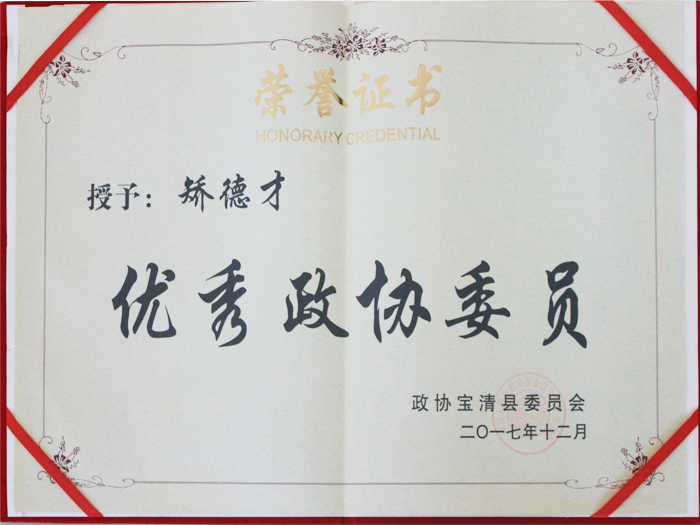 荣誉证书
HONORARY CREDENTIAL
授予：矫德才
优秀政协委员
政协宝清县委员会
二〇一七年十二月